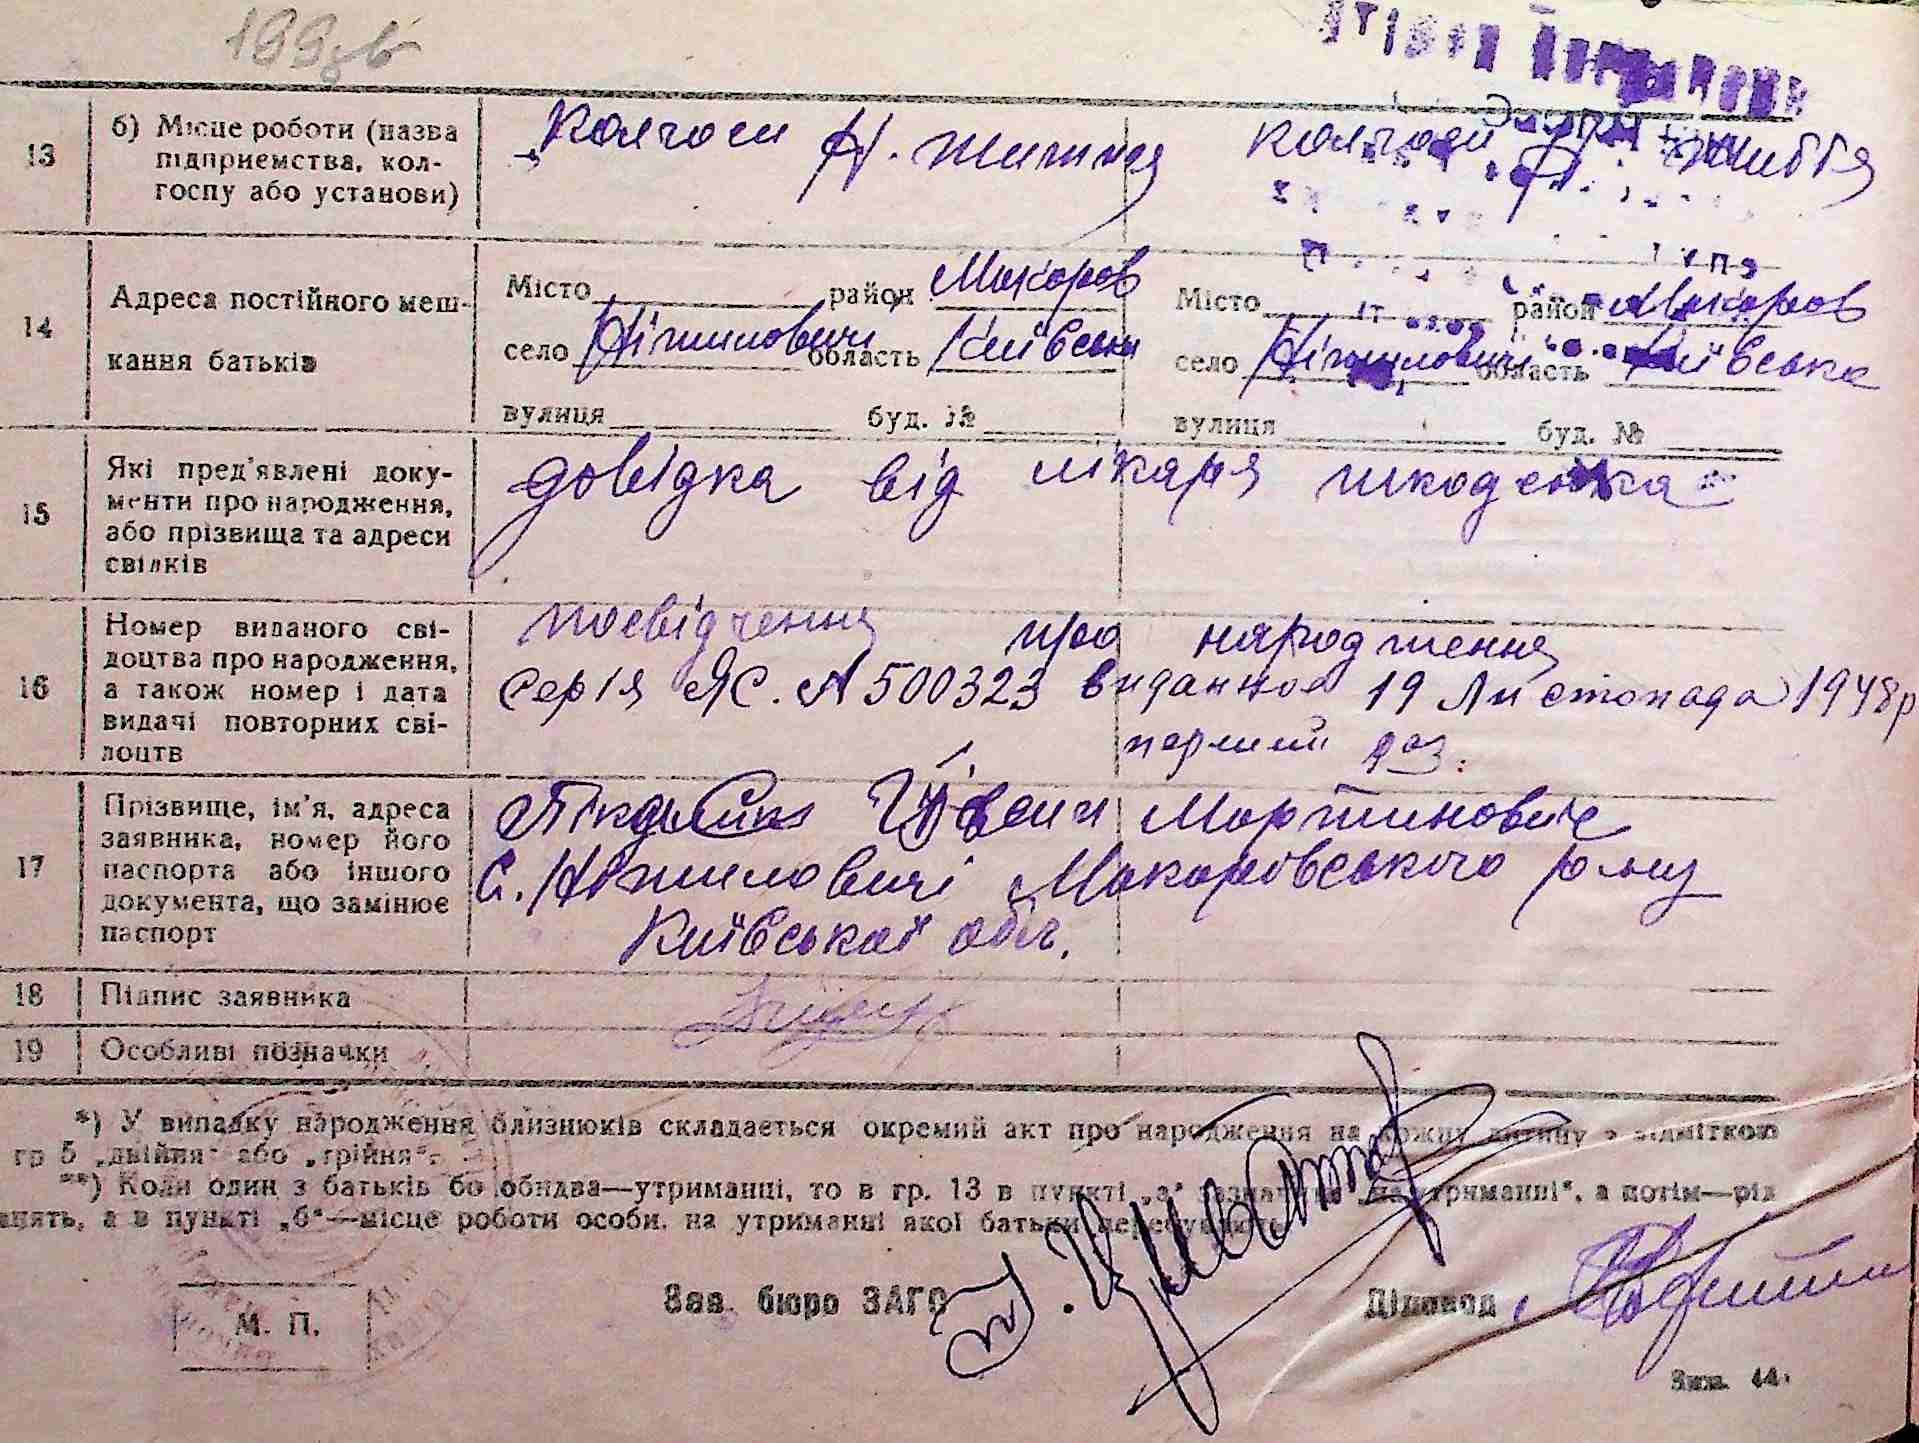 199 зв
13 б) Місце роботи (назва підприємства, колгоспу або установи) Колгосп Н. життя колгосп Н. життя
14 Адреса постійного мешкання батьків
Місто район Макаров Місто район Макаров
село Ніжиловичі область Київська село Ніжиловичі область Київська
вулиця буд. № вулиця буд. №
15 Які пред'явлені документи про народження, або прізвища та адреси свідків
довідка від лікаря шкоденка
16 Номер виданого свідоцтва про народження, а також номер і дата видачі повторних свідоцтв
посвідчення про народження
серія ЯС. А 500323 виданное 19 Листопада 1948р
перший раз.
17 Прізвище, ім'я, адреса заявника, номер його паспорта або іншого документа, що замінює паспорт
Іван Мартинович
С. Ніжиловичі Макаровського р-ну
Київської обл.
18 Підпис заявника
19 Особливі позначки
*) У випадку народження близнюків складається окремий акт про народження на кожну дитину з відміткою
гр 5 „двійня" або „трійня".
**) Коли один з батьків бо обидва—утриманці, то в гр. 13 в пункті „а" зазначити „на утриманні", а потім—рід
занять, а в пункті „б"—місце роботи особи, на утриманні якої батьки перебувають
Зав. бюро ЗАГС Діловод
М. П.
Зам. 44